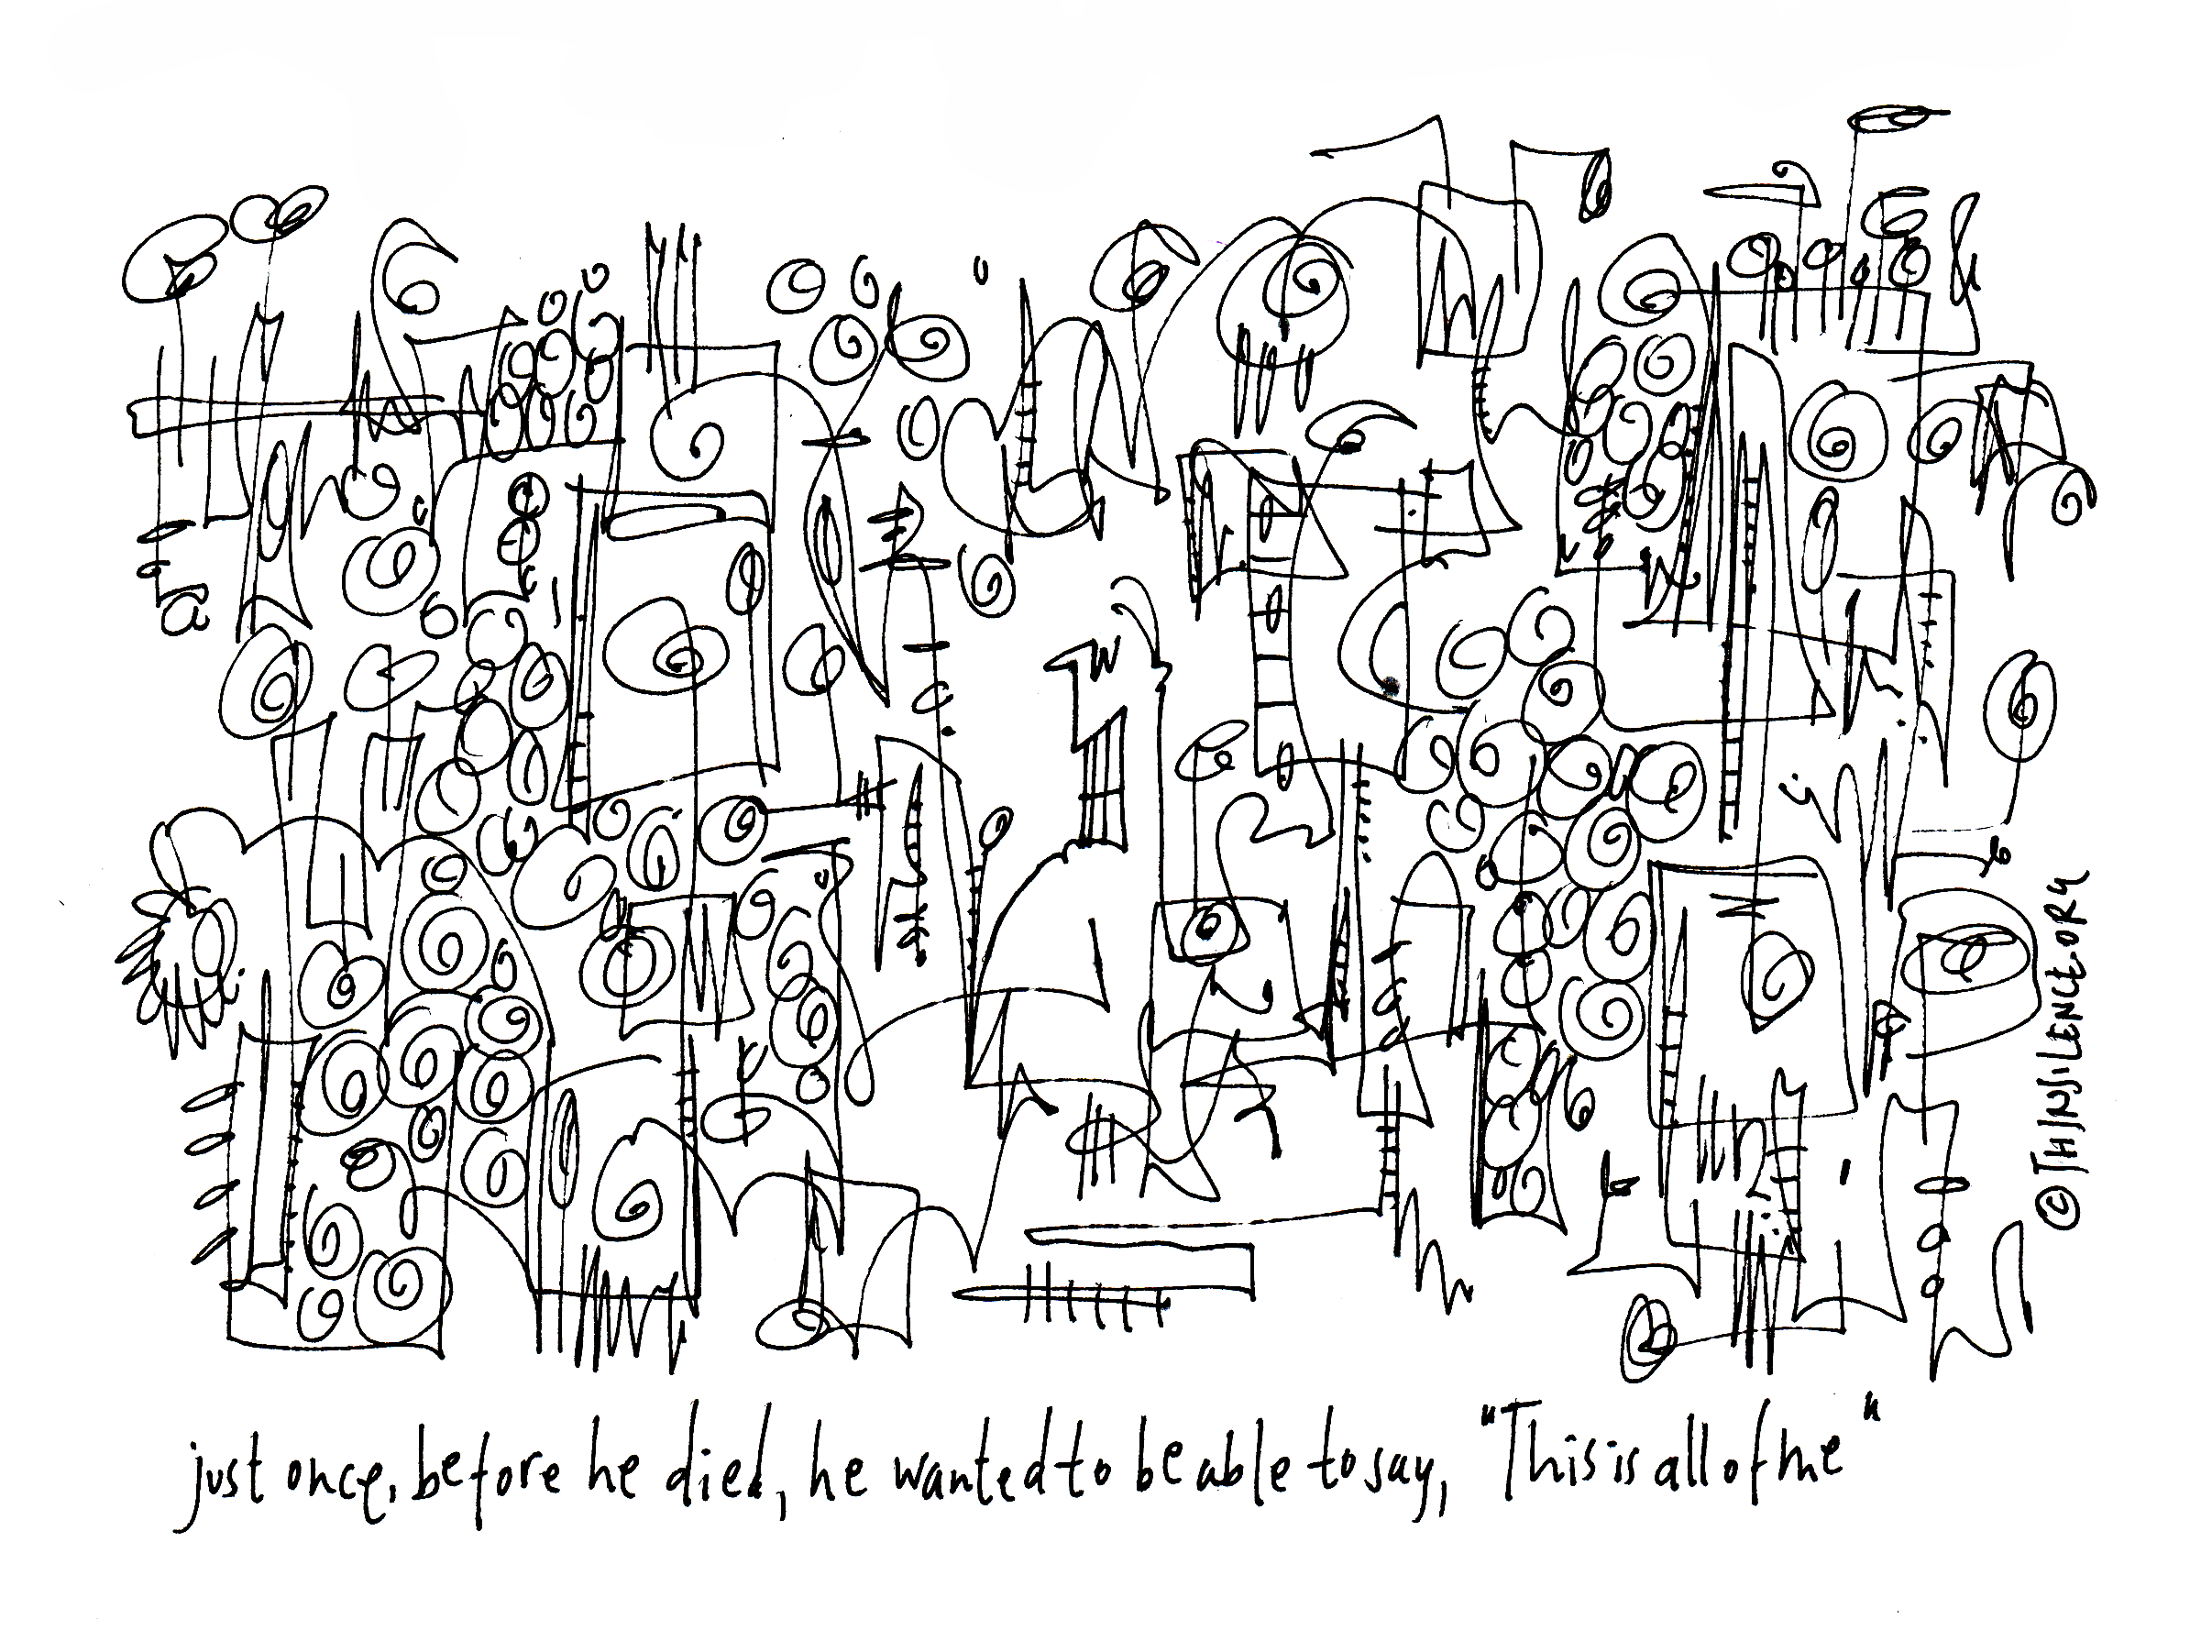 just once, before he died, he wanted to be able to say, "This is all of me"
© THINSILENCE.ORG